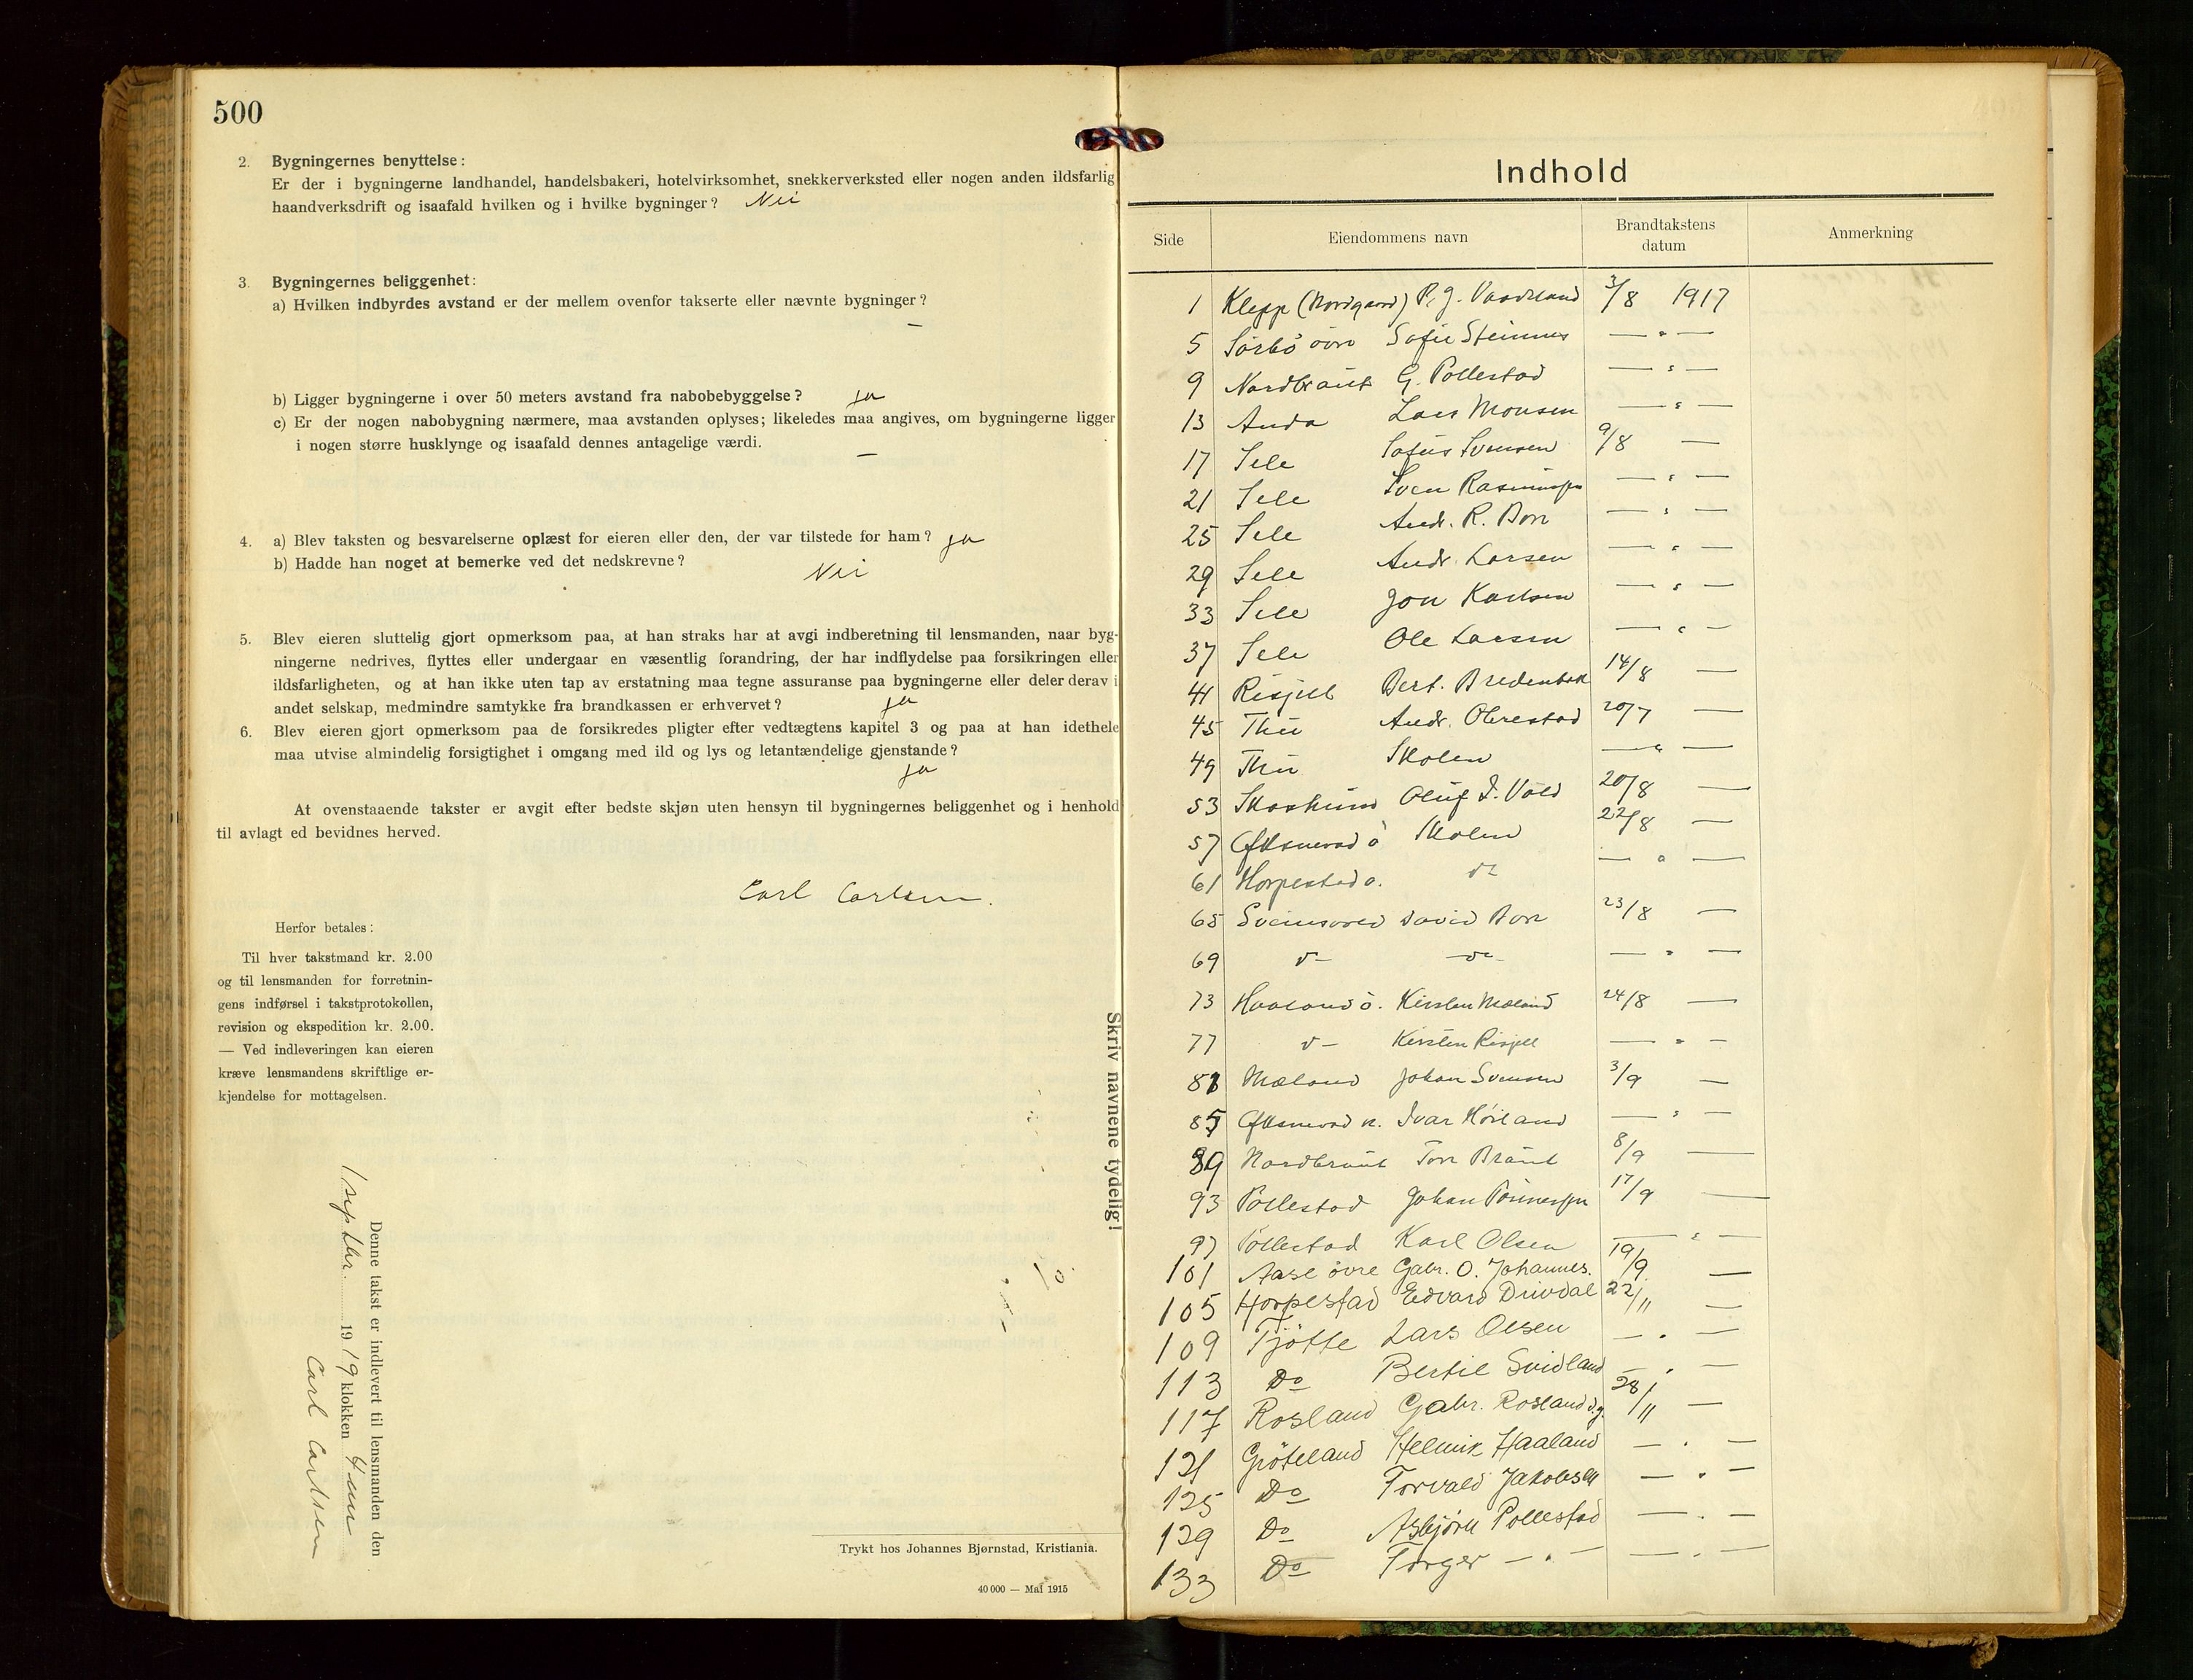 500
2. Bygningernes benyttelse:
Er der i bygningerne landhandel, handelsbakeri, hotelvirksomhet, snekkerverksted eller nogen anden ildsfarlig
haandverksdrift og isaafald hvilken og i hvilke bygninger? Nei
3. Bygningernes beliggenhet:
a) Hvilken indbyrdes avstand er der mellem ovenfor takserte eller nævnte bygninger?
—
b) Ligger bygningerne i over 50 meters avstand fra nabobebyggelse? ja
c) Er der nogen nabobygning nærmere, maa avstanden oplyses; likeledes maa angives, om bygningerne ligger
i nogen større husklynge og isaafald dennes antagelige værdi. —
4. a) Blev taksten og besvarelserne oplæst for eieren eller den, der var tilstede for ham? ja
b) Hadde han noget at bemerke ved det nedskrevne? Nei
5. Blev eieren sluttelig gjort opmerksom paa, at han straks har at avgi indberetning til lensmanden, naar byg-
ningerne nedrives, flyttes eller undergaar en væsentlig forandring, der har indflydelse paa forsikringen eller
ildsfarligheten, og at han ikke uten tap av erstatning maa tegne assuranse paa bygningerne eller deler derav i
andet selskap, medmindre samtykke fra brandkassen er erhvervet? ja
6. Blev eieren gjort opmerksom paa de forsikredes pligter efter vedtægtens kapitel 3 og paa at han idethele
maa utvise almindelig forsigtighet i omgang med ild og lys og letantændelige gjenstande?
ja
At ovenstaaende takster er avgit efter bedste skjøn uten hensyn til bygningernes beliggenhet og i henhold
til avlagt ed bevidnes herved.
Carl Carlsen.
Herfor betales:
Til hver takstmand kr. 2.00
og til lensmanden for forretnin-
gens indførsel i takstprotokollen,
revision og ekspedition kr. 2.00.
— Ved indleveringen kan eieren
kræve lensmandens skriftlige er-
kjendelse for mottagelsen.
Denne takst er indlevert til lensmanden den
1 septbr. 1919 klokken 4 em
Carl Carlsen
Trykt hos Johannes Bjørnstad, Kristiania.
40 000 — Mai 1915
Skriv navnene tydelig!
Indhold
Side Eiendommens navn Brandtakstens datum Anmerkning
1 Klepp (Nordgaard) P. G. Vaadland 3/8 1917
5 Sörbö övre Sofie Steinnes — " —
9 Nordbraut G. Pollestad — " —
13 Anda Lars Monsen — " —
17 Sele Sofus Svensen 9/8 —
21 Sele Sven Rasmussen — " —
25 Sele Andr. R. Bore — " —
29 Sele Andr. Larsen — " —
33 Sele Jon Karlsen — " —
37 Sele Ole Larsen — " —
41 Risjell Bert. Bredenbek 14/8 —
45 Thu Andr. Obrestad 20/7 —
49 Thu Skolen — " —
53 Skaskind Oluf J. Vold 20/8 —
57 Øksnevad ö Skolen 22/8 —
61 Horpestad ö. do — " —
65 Sveinsvold David Bore 23/8 —
69 do do — " —
73 Haaland ö. Kirsten Mæland 24/8 —
77 do Kirsten Risjell — " —
81 Mæland Johan Svensen 3/9 —
85 Øksnevad n. Ivar Höiland — " —
89 Nordbraut Tore Braut 8/9 —
93 Pollestad Johan Tönnessen 17/9 —
97 Pollestad Karl Olsen — " —
101 Aase övre Gabr. O. Johannes. 19/9 —
105 Horpestad Edvard Drivdal 22/11 —
109 Tjötte Lars Olsen — " —
113 Do Bertil Svidland — " —
117 Rosland Gabr. Rosland d.y. 28/11 —
121 Gröteland Helmik Haaland — " —
125 Do Torvald Jakobsen — " —
129 Do Asbjörn Pollestad — " —
133 Do Torger — " — — " —